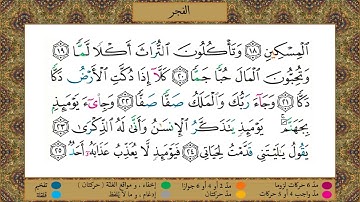 الفجر
ٱلْمِسْكِينِ ۝١٨ وَتَأْكُلُونَ ٱلتُّرَاثَ أَكْلًا لَّمًّا ۝١٩
وَتُحِبُّونَ ٱلْمَالَ حُبًّا جَمًّا ۝٢٠ كَلَّآ إِذَا دُكَّتِ ٱلْأَرْضُ دَكًّا
دَكًّا ۝٢١ وَجَآءَ رَبُّكَ وَٱلْمَلَكُ صَفًّا صَفًّا ۝٢٢ وَجِا۟ىٓءَ يَوْمَئِذٍۭ
بِجَهَنَّمَ ۚ يَوْمَئِذٍ يَتَذَكَّرُ ٱلْإِنسَٰنُ وَأَنَّىٰ لَهُ ٱلذِّكْرَىٰ ۝٢٣
يَقُولُ يَٰلَيْتَنِى قَدَّمْتُ لِحَيَاتِى ۝٢٤ فَيَوْمَئِذٍ لَّا يُعَذِّبُ عَذَابَهُۥٓ أَحَدٌ ۝٢٥
مد ٦ حركات لزوما مد ٢ أو ٤ أو ٦ جوازا إخفاء، ومواقع الغنة (حركتان) تفخيم
مد واجب ٤ أو ٥ حركات مد حركتان إدغام، وما لا يلفظ قلقلة